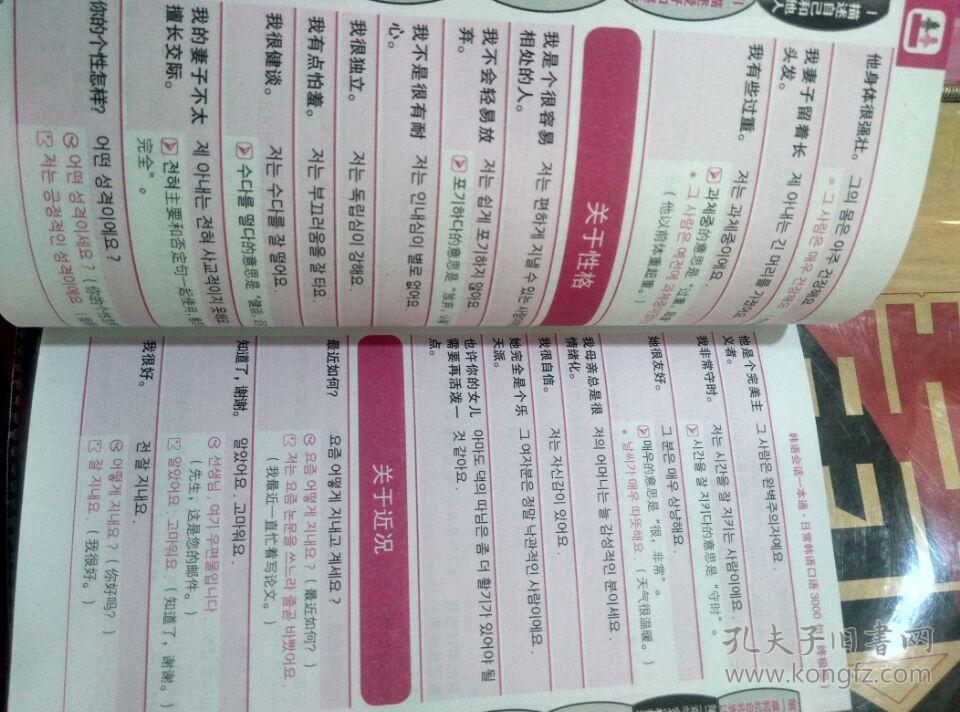 描述自己和他人
他身体很强壮。 그의 몸은 아주 건강해요
= 그 사람은 매우 건강해요
我妻子留着长 제 아내는 긴 머리를 가졌어요
头发。
我有些过重。 저는 과체중이에요.
과체중的意思是“过重
* 그 사람은 예전에 과체중이
（他以前体重超重。）
关于性格
我是个很容易 저는 편하게 지낼 수 있는 사람이
相处的人。
我不会轻易放 저는 쉽게 포기하지 않아요
弃。
포기하다的意思是“放弃
我不是很有耐 저는 인내심이 별로 없어요.
心。
我很独立。 저는 독립심이 강해요.
我有点怕羞。 저는 부끄러움을 잘 타요.
我很健谈。 저는 수다를 잘 떨어요.
수다를 떨다的意思是“健谈
我的妻子不太 제 아내는 전혀 사교적이지 못해요
擅长交际。
전혀主要和否定句一起使用，
完全”。
你的个性怎样? 어떤 성격이에요 ?
어떤 성격이세요 ?（你的个性
저는 긍정적인 성격이에요
韩语会话一本通·日常韩语口语 3000 句（终极
他是个完美主 그 사람은 완벽주의자예요.
义者。
我非常守时。 저는 시간을 잘 지키는 사람이에요.
시간을 잘 지키다的意思是“守时”。
她很友好。 그 분은 매우 상냥해요.
매우的意思是“很，非常”。
* 날씨가 매우 따뜻해요.（天气很温暖。）
我母亲总是很 저의 어머니는 늘 감성적인 분이세요.
情绪化。
我很自信。 저는 자신감이 있어요.
她完全是个乐 그 여자분은 정말 낙관적인 사람이에요.
天派。
也许你的女儿 아마도 댁의 따님은 좀 더 활기가 있어야 될
需要再活泼一 것 같아요.
点。
关于近况
最近如何? 요즘 어떻게 지내고 계세요 ?
요즘 어떻게 지내요 ?（最近如何? ）
저는 요즘 논문을 쓰느라 줄곧 바빴어요.
（我最近一直忙着写论文。）
知道了，谢谢。 알았어요 . 고마워요.
선생님, 여기 우편물입니다
（先生，这是您的邮件。）
알았어요 . 고마워요.（知道了，谢谢。）
我很好。 전 잘 지내요.
어떻게 지내요 ?（你好吗? ）
잘 지내요.（我很好。）
孔夫子旧书网
www.kongfz.com